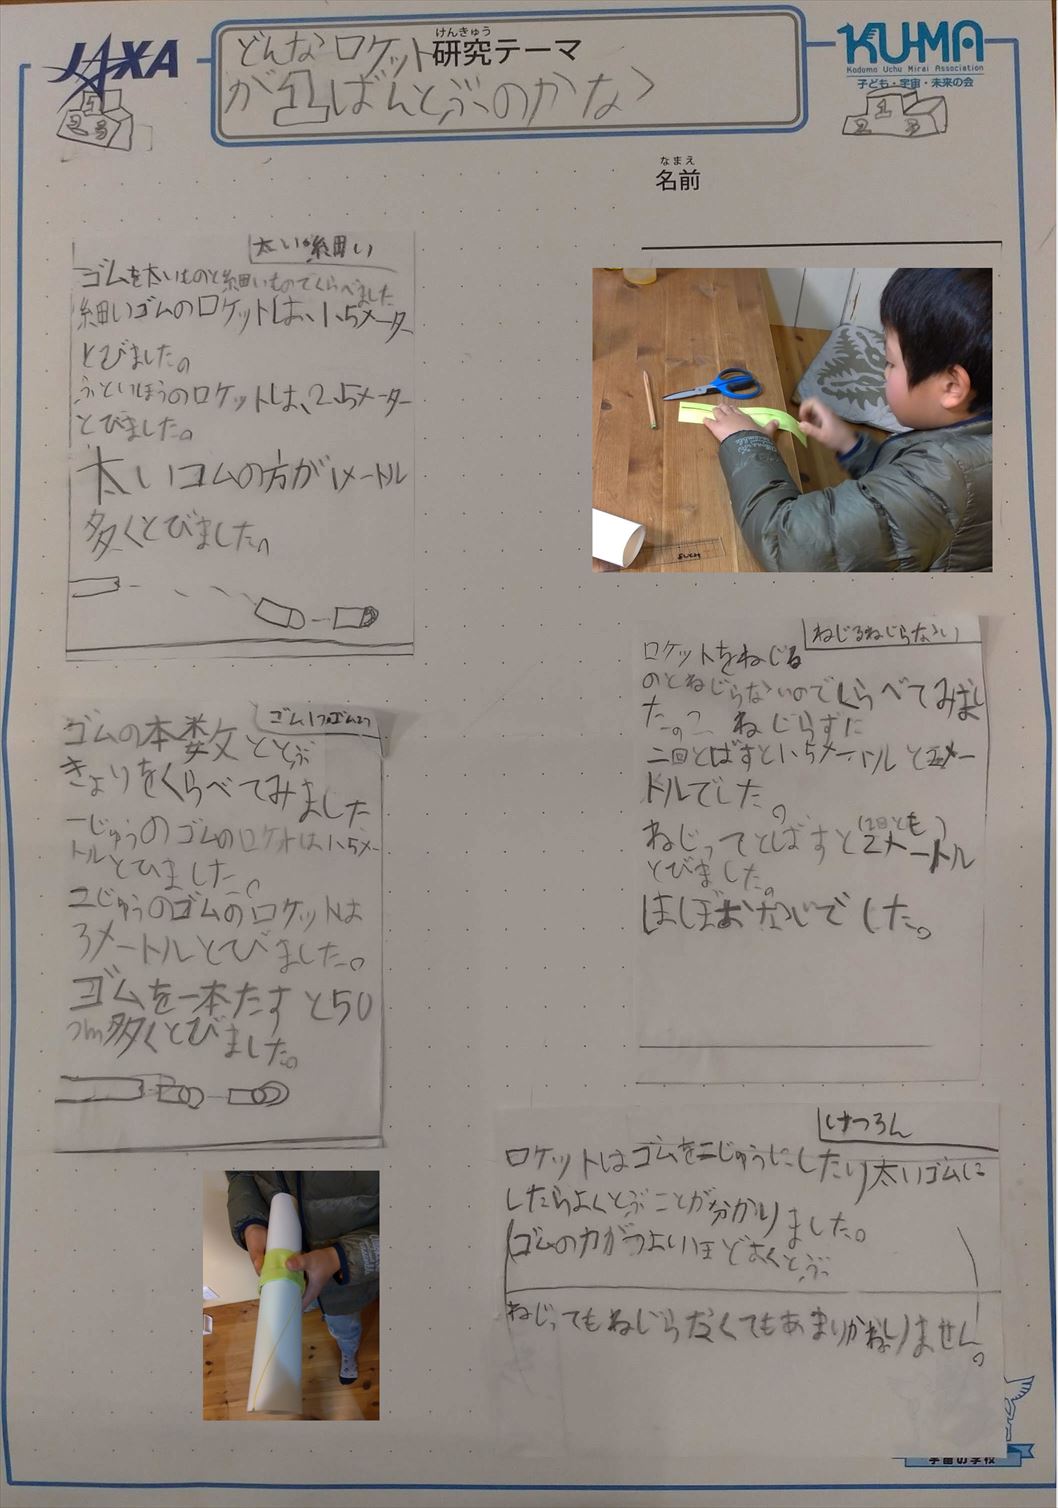 JAXA
けんきゅう
研究テーマ
どんなロケット
が1ばんとぶのかな
KU-MA
Kodomo Uchu Mirai Association
子ども・宇宙・未来の会
1
2 3
1
2 3
なまえ
名前
太い細い
ゴムを太いものと細いものでくらべました
細いゴムのロケットは、1.5メーター
とびました。
ふといほうのロケットは、2.5メーター
とびました。
太いゴムの方が1メートル
多くとびました。
ゴムの本数ととぶ
きょりをくらべてみました
一じゅうのゴムのロケットは1.5メー
トルとびました。
2じゅうのゴムのロケットは
3メートルとびました。
ゴムを一本たすと50
cm多くとびました。
ねじるねじらない
ロケットをねじる
のとねじらないのでくらべてみまし
た。 ねじらずに
二回とばすと1.5メートルと2メー
トルでした。
ねじってとばすと(2回とも)2メートル
とびました。
ほぼおなじでした。
けつろん
ロケットはゴムを二じゅうにしたり太いゴムに
したらよくとぶことが分かりました。
(ゴムの力がつよいほどよくとぶ
ねじってもねじらなくてもあまりかわりません。
宇宙の学校